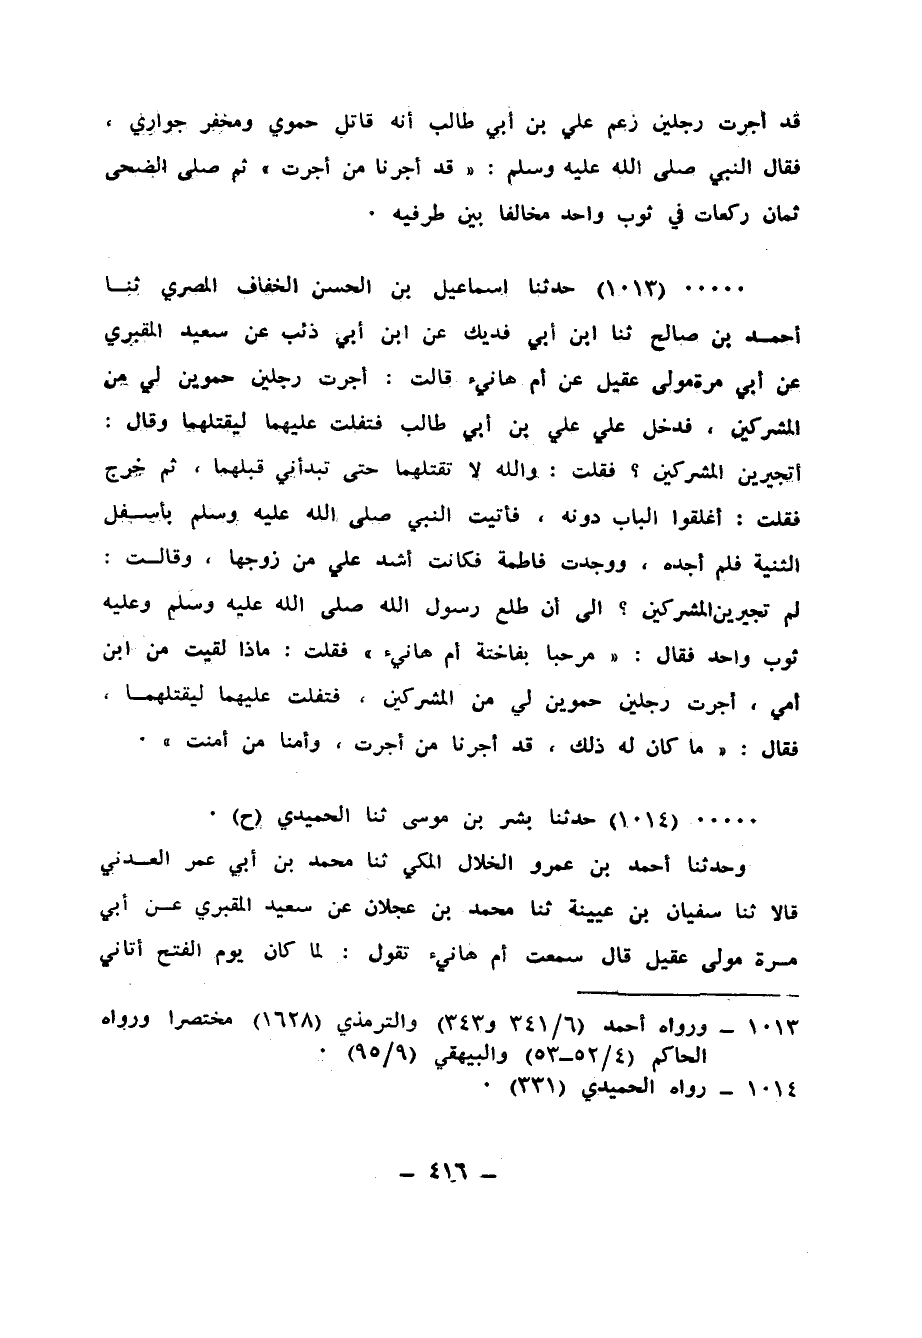 قد أجرت رجلين زعم علي بن أبي طالب أنه قاتل حموي ومخفر جواري ،
فقال النبي صلى الله عليه وسلم : « قد أجرنا من أجرت » ثم صلى الضحى
ثمان ركعات في ثوب واحد مخالفا بين طرفيه ٠
٠٠٠٠٠ (١٠١٣) حدثنا اسماعيل بن الحسن الخفاف المصري ثنـا
أحمـد بن صالح ثنا ابن أبي فديك عن ابن أبي ذئب عن سعيد المقبري
عن أبي مرةمولى عقيل عن أم هانيء قالت : أجرت رجلين حموين لي من
المشركين ، فدخل علي علي بن أبي طالب فتفلت عليهما ليقتلهما وقال :
أتجيرين المشركين ؟ فقلت : والله لا تقتلهما حتى تبدأني قبلهما ، ثم خرج
فقلت : أغلقوا الباب دونه ، فأتيت النبي صلى الله عليه وسلم بأسـفل
الثنية فلم أجده ، ووجدت فاطمة فكانت أشد علي من زوجها ، وقالـت :
لم تجيرينالمشركين ؟ الى أن طلع رسول الله صلى الله عليه وسلم وعليه
ثوب واحد فقال : « مرحبا بفاختة أم هانيء » فقلت : ماذا لقيت من ابن
أمي ، أجرت رجلين حموين لي من المشركين ، فتفلت عليهما ليقتلهمـا ،
فقال : « ما كان له ذلك ، قد أجرنا من أجرت ، وأمنا من أمنت » ٠
٠٠٠٠٠ (١٠١٤) حدثنا بشر بن موسى ثنا الحميدي (ح) ٠
وحدثنا أحمد بن عمرو الخلال المكي ثنا محمد بن أبي عمر العـدني
قالا ثنا سفيان بن عيينة ثنا محمد بن عجلان عن سعيد المقبري عـن أبي
مـرة مولى عقيل قال سمعت أم هانيء تقول : لما كان يوم الفتح أتاني
١٠١٣ ــ ورواه أحمد (٣٤١/٦ و٣٤٣) والترمذي (١٦٢٨) مختصرا ورواه
الحاكم (٥٢/٤ــ٥٣) والبيهقي (٩٥/٩) ٠
١٠١٤ ــ رواه الحميدي (٣٣١) ٠
ــ ٤١٦ ــ